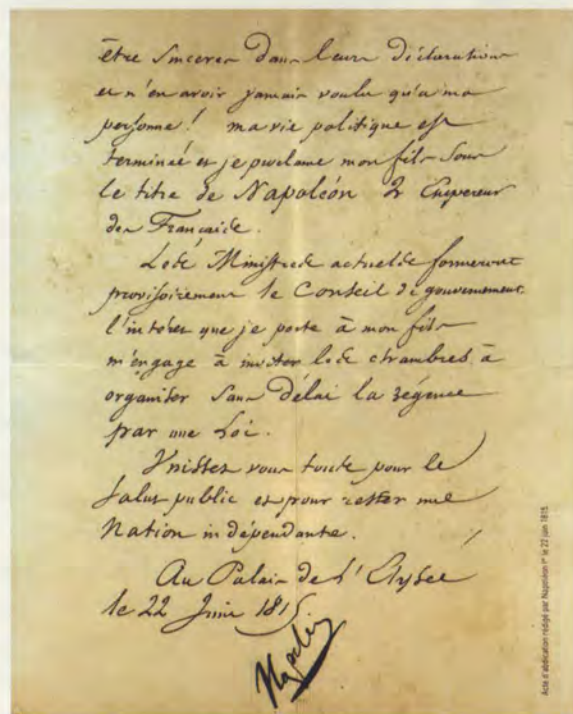 être sinceres dans leurs déclarations
et n'en avoir jamais voulu qu'a ma
personne! ma vie politique est
terminée et je proclame mon fils sous
le titre de Napoléon 2 Empereur
des Français.
Les Ministres actuels formeront
provisoirement le Conseil de gouvernement
l'interet que je porte à mon fils
m'engage à inviter les chambres à
organiser sans délai la régence
par une Loi.
Unissez vous tous pour le
salut public et pour rester une
Nation indépendante.
Au Palais de l'Elysée
le 22 Juin 1815.
Acte d'abdication rédigé par Napoléon Ier le 22 juin 1815